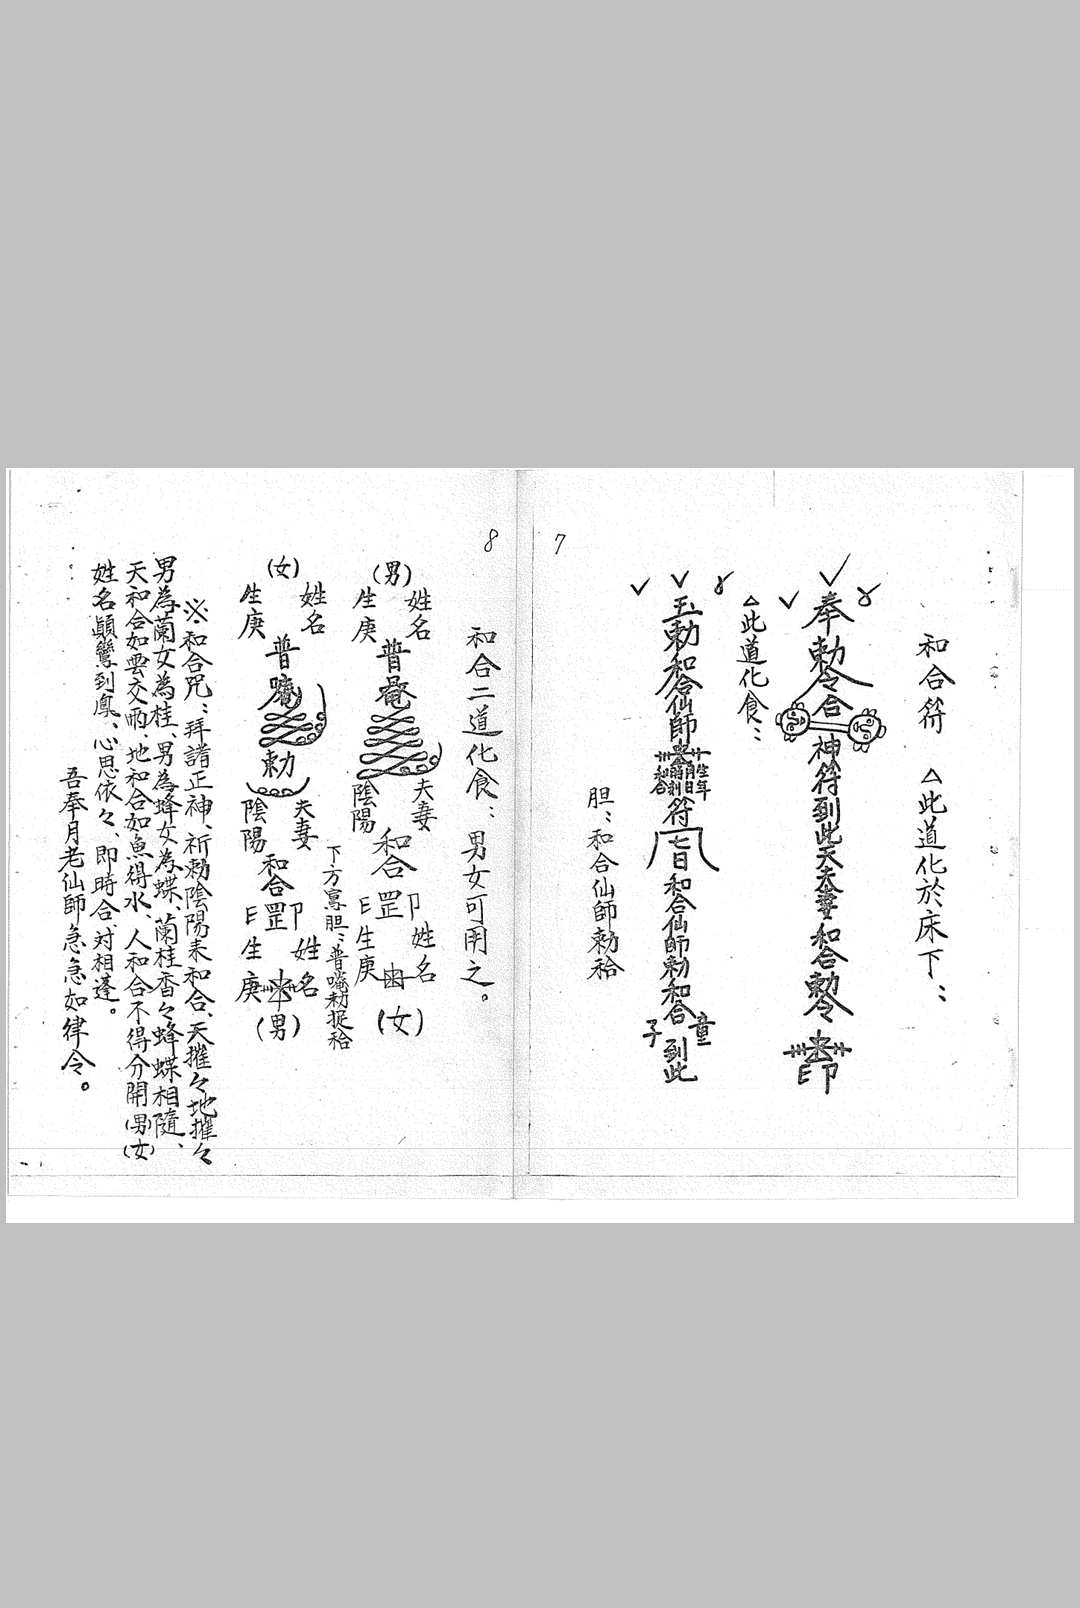 7
和合符　△此道化於床下：
奉勅令合神符到此天夫妻和合勅令印
△此道化食：
玉勅和合仙師
生年
月日
時刻
和合
符七日和合仙師勅和合
童子
到此
胆：和合仙師勅袷
8
和合二道化食：男女可用之。
(男)
姓名
生庚
普庵
夫妻
陰陽
和合罡
姓名
生庚
(女)
下方寫胆：普唵勅捉袷
(女)
姓名
生庚
普唵
勅
夫妻
陰陽
和合罡
姓名
生庚
(男)
※和合咒：拜請正神、祈勅陰陽来和合、天摧々地摧々
男為蘭女為桂、男為蜂女為蝶、蘭桂香々蜂蝶相隨、
天和合如雲交雨、地和合如魚得水、人和合不得分開(男)(女)
姓名顛鸞到鳳、心思依々、即時合対相逢。
吾奉月老仙師急急如律令。